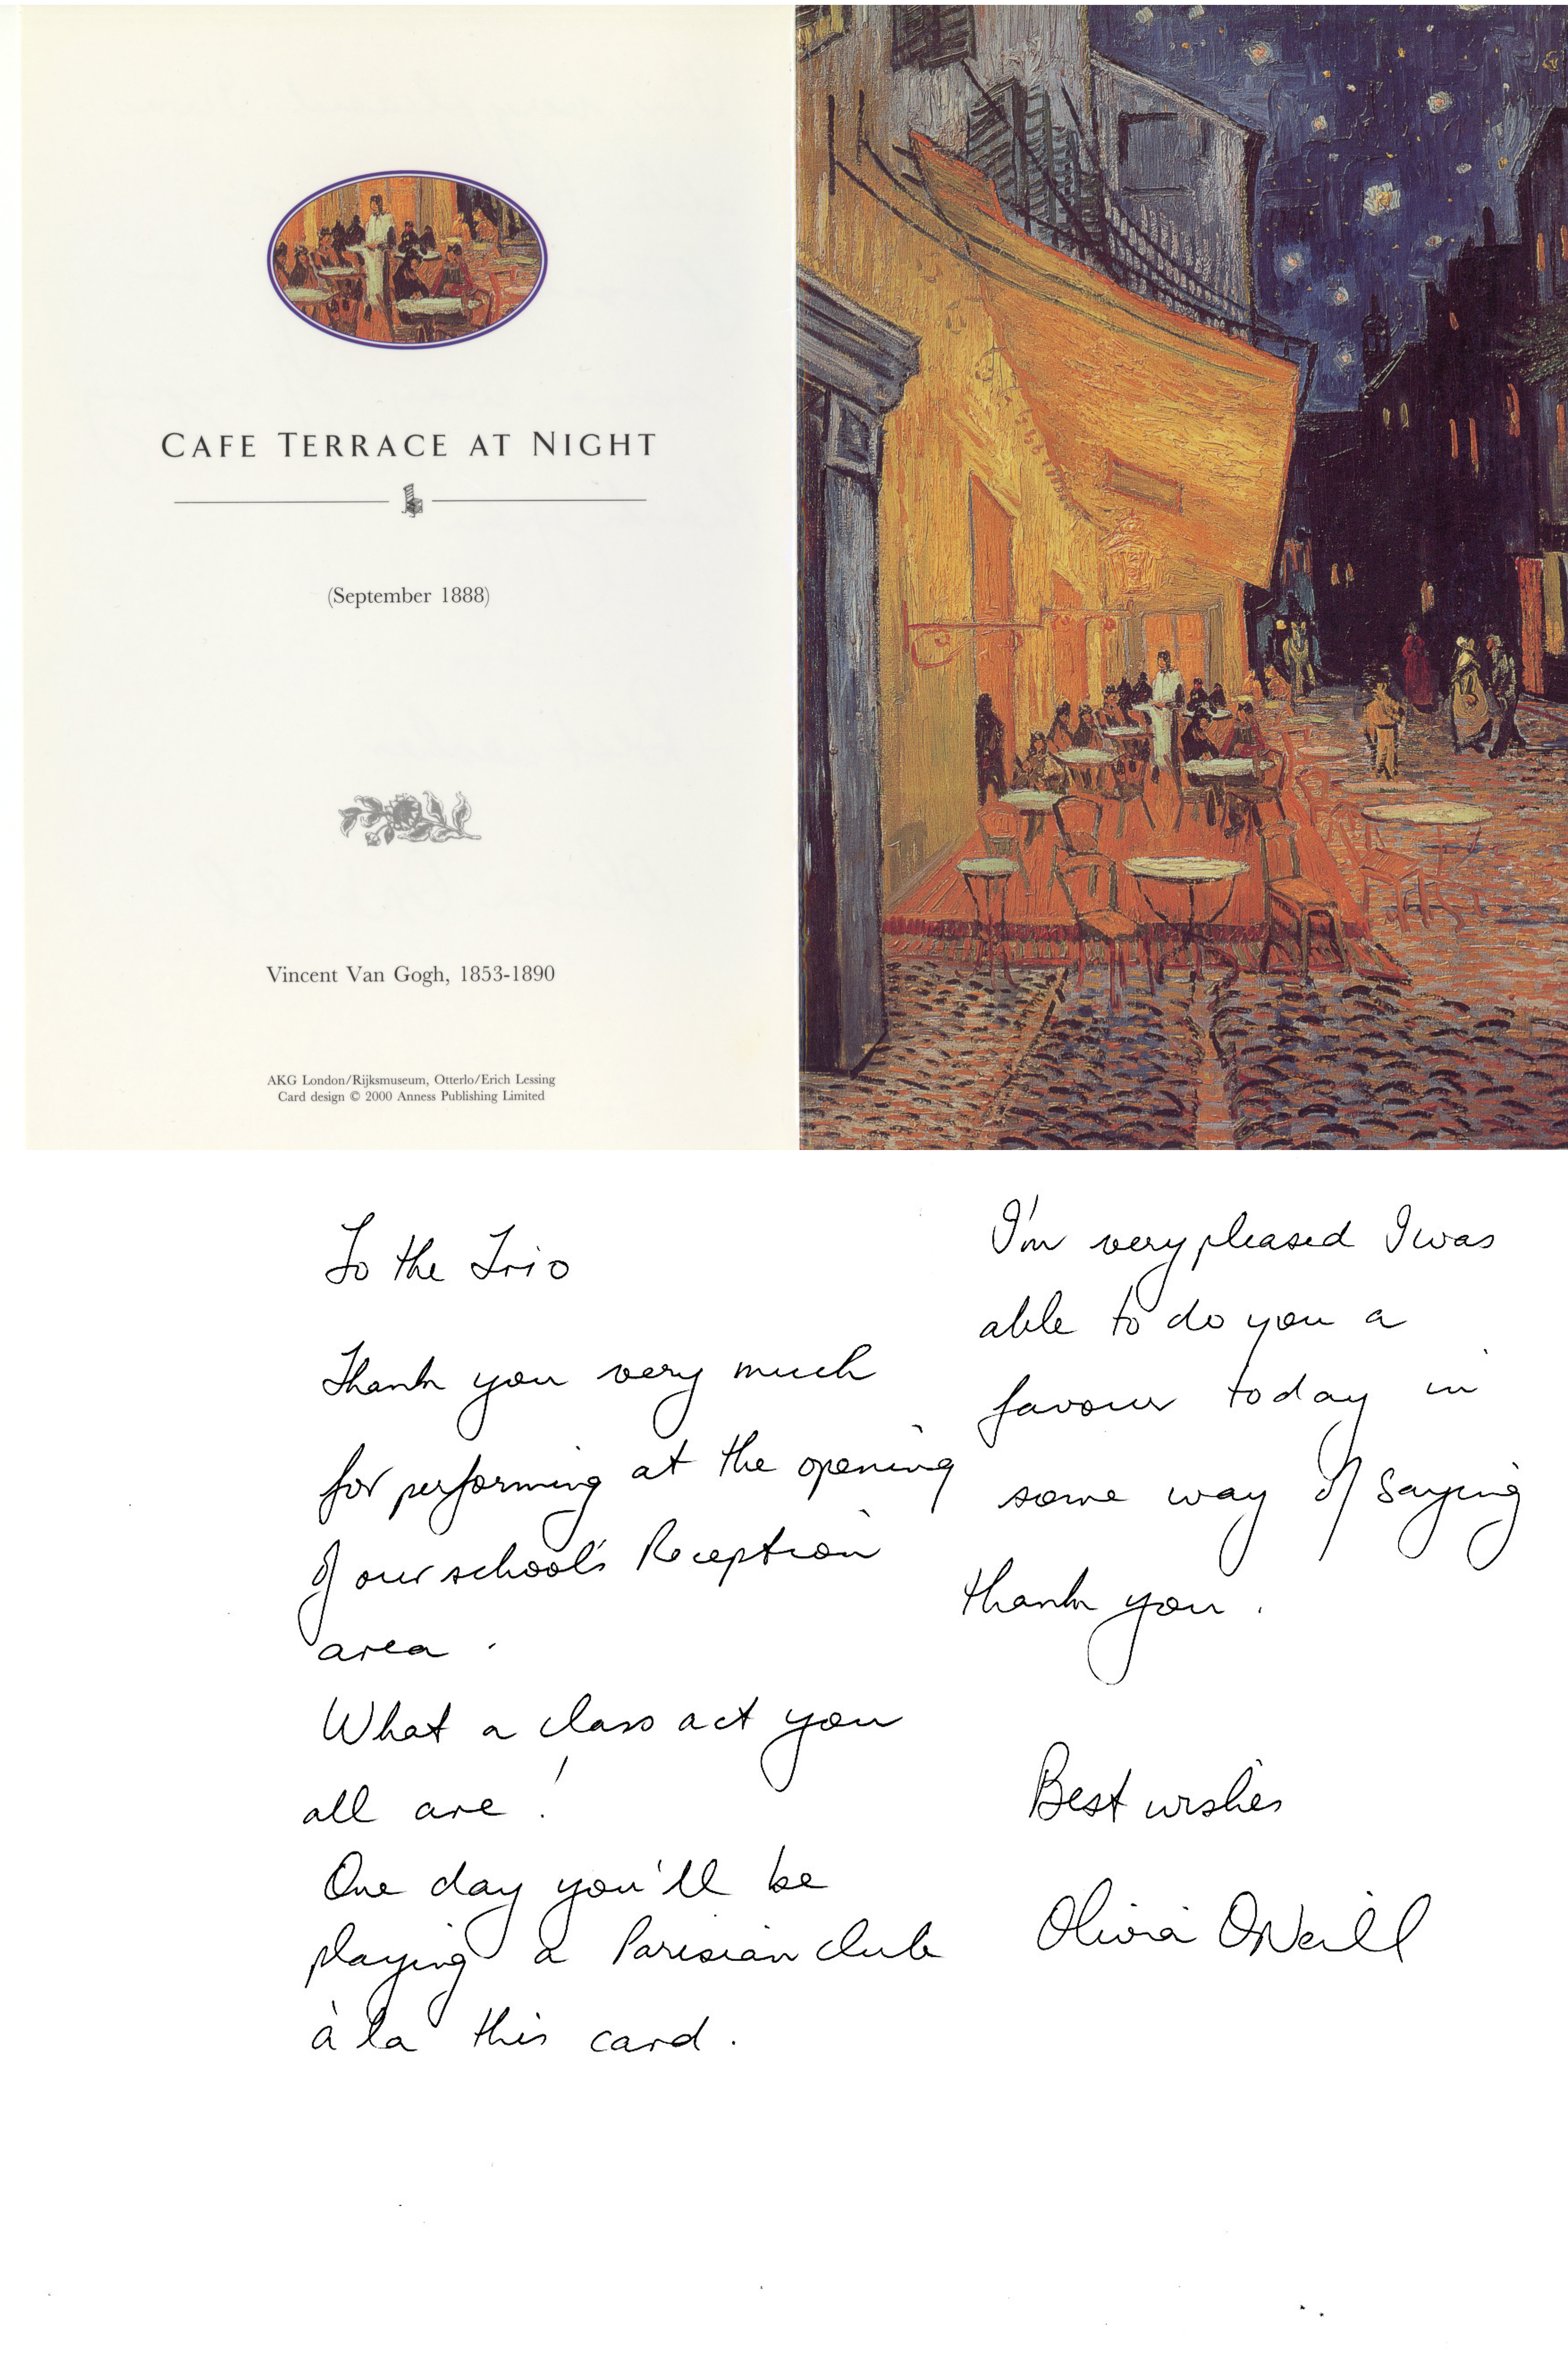 CAFE TERRACE AT NIGHT
(September 1888)
Vincent Van Gogh, 1853-1890
AKG London/Rijksmuseum, Otterlo/Erich Lessing
Card design © 2000 Anness Publishing Limited
To the Trio
Thank you very much
for performing at the opening
of our school's Reception
area.
What a class act you
all are!
One day you'll be
playing a Parisian club
à la this card.
I'm very pleased I was
able to do you a
favour today in
some way of saying
thank you.
Best wishes
Olivia O'Neill